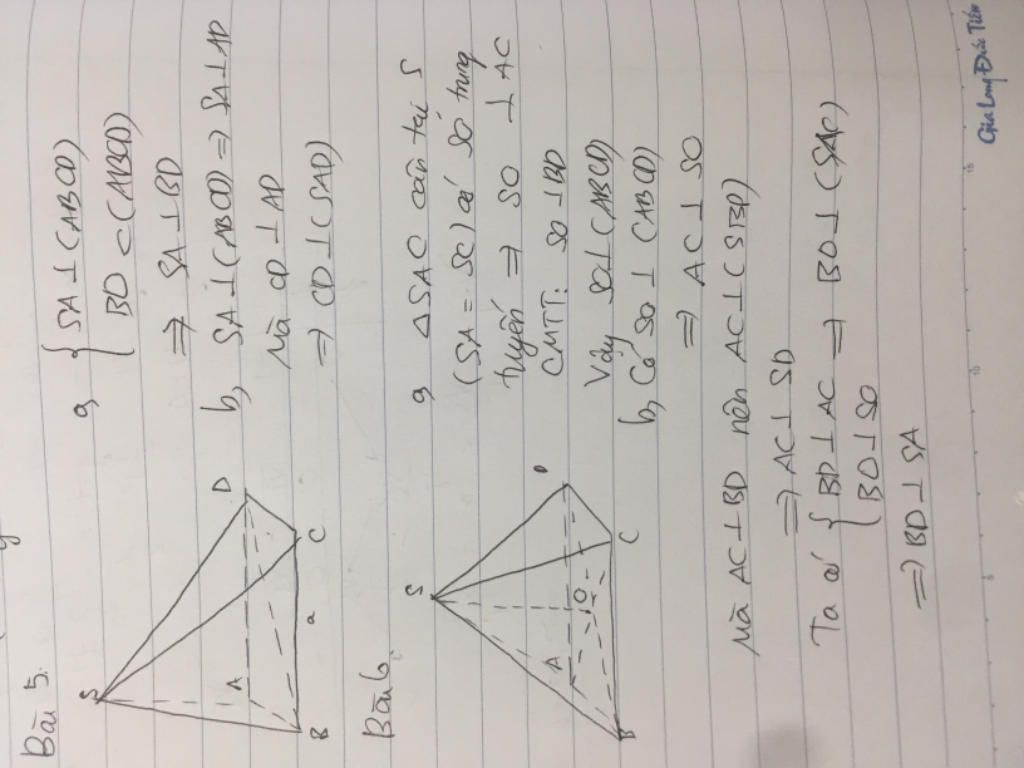 Bài 5.
S
A
D
B
a
C
a, { SA ⊥ (ABCD)
BD ⊂ (ABCD)
=> SA ⊥ BD
b, SA ⊥ (ABCD) => SA ⊥ AD
Mà CD ⊥ AD
=> CD ⊥ (SAD)
Bài 6.
S
A
D
O
B
C
a, △SAC cân tại S
(SA = SC) có SO trung
tuyến => SO ⊥ AC
CMTT: SO ⊥ BD
Vậy SO ⊥ (ABCD)
b, Có SO ⊥ (ABCD)
=> AC ⊥ SO
Mà AC ⊥ BD nên AC ⊥ (SBD)
=> AC ⊥ SD
Ta có { BD ⊥ AC => BD ⊥ (SAC)
BD ⊥ SO
=> BD ⊥ SA
15
10
5
Gia Long Đức Tiến